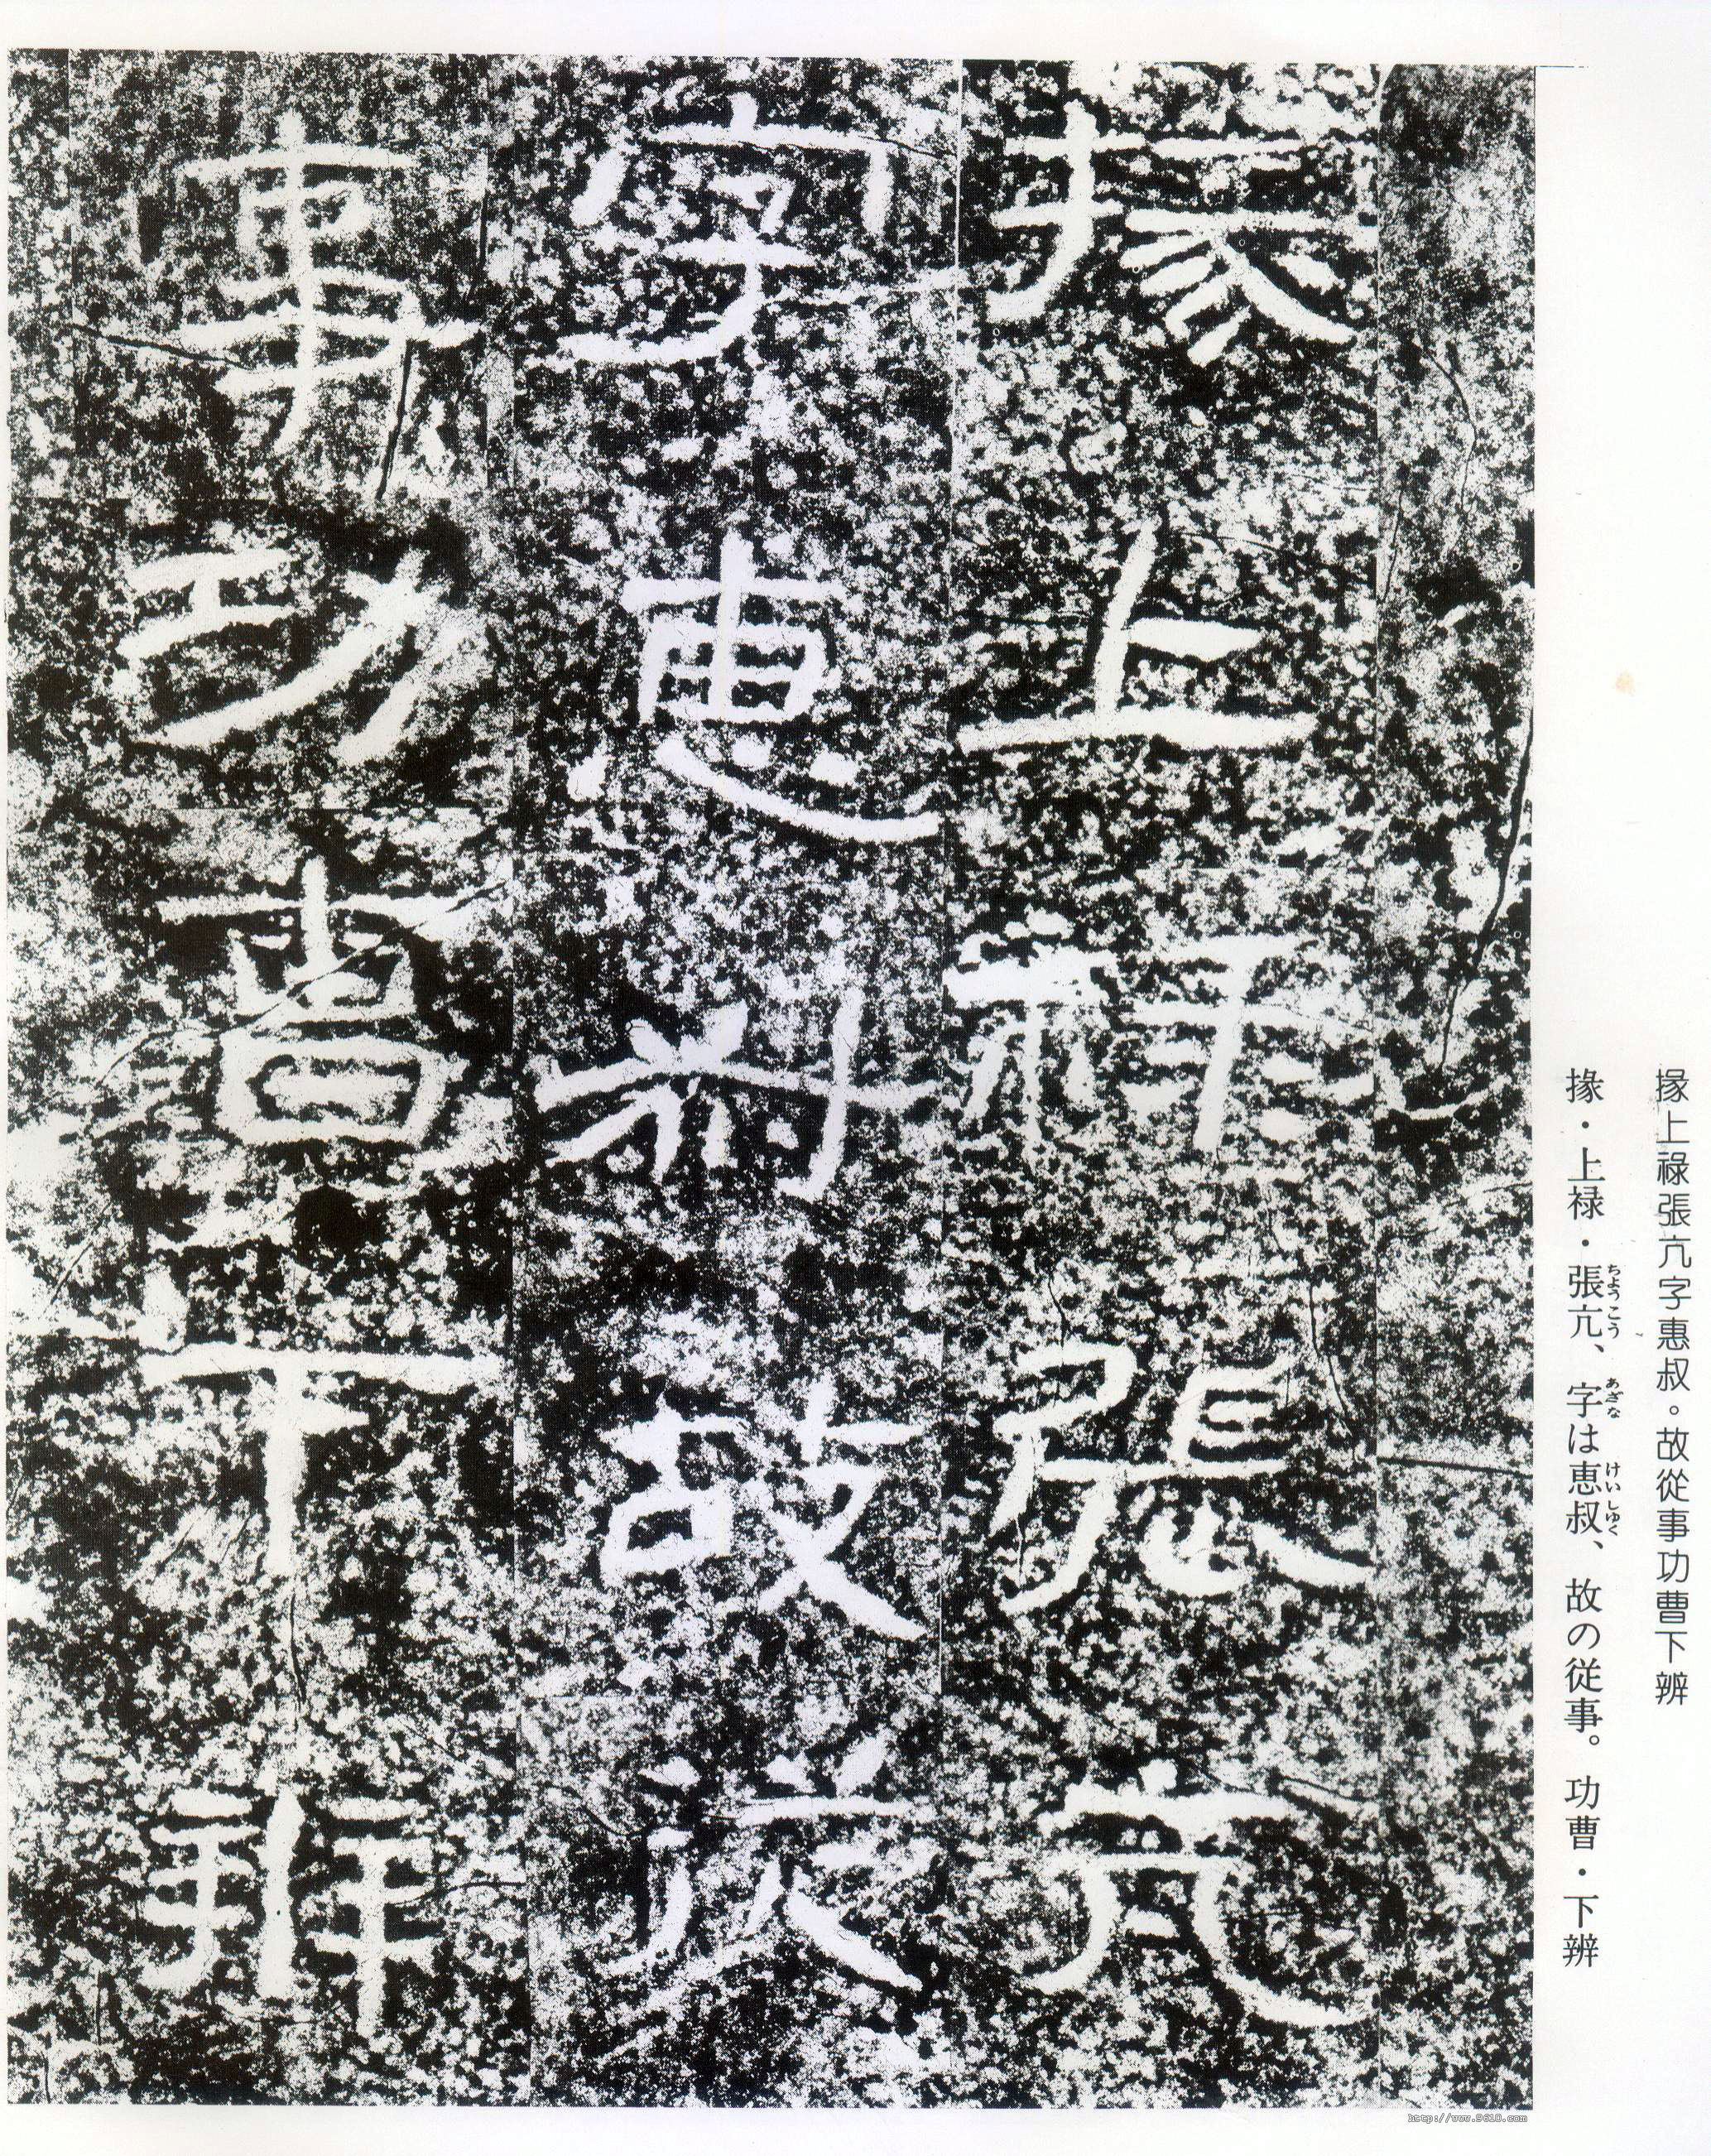 掾上祿張亢字惠叔。故從事功曹下辨
掾・上禄・張亢、字は恵叔、故の従事。功曹・下辨
ちょうこう
あざな
けいしゅく
掾上祿張亢
字惠叔故從
事功曹下辨
http://www.9610.com